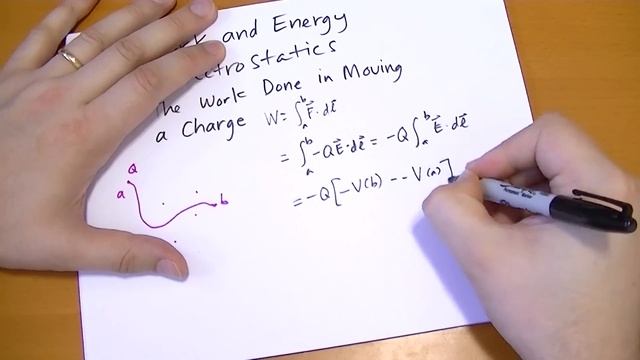 and Energy
The Work Done in Moving
a Charge W = ∫ₐᵇ F⃗ · dl⃗
= ∫ₐᵇ -QE⃗ · dl⃗ = -Q ∫ₐᵇ E⃗ · dl⃗
= -Q[-V(b) - -V(a)]
Q
a
b